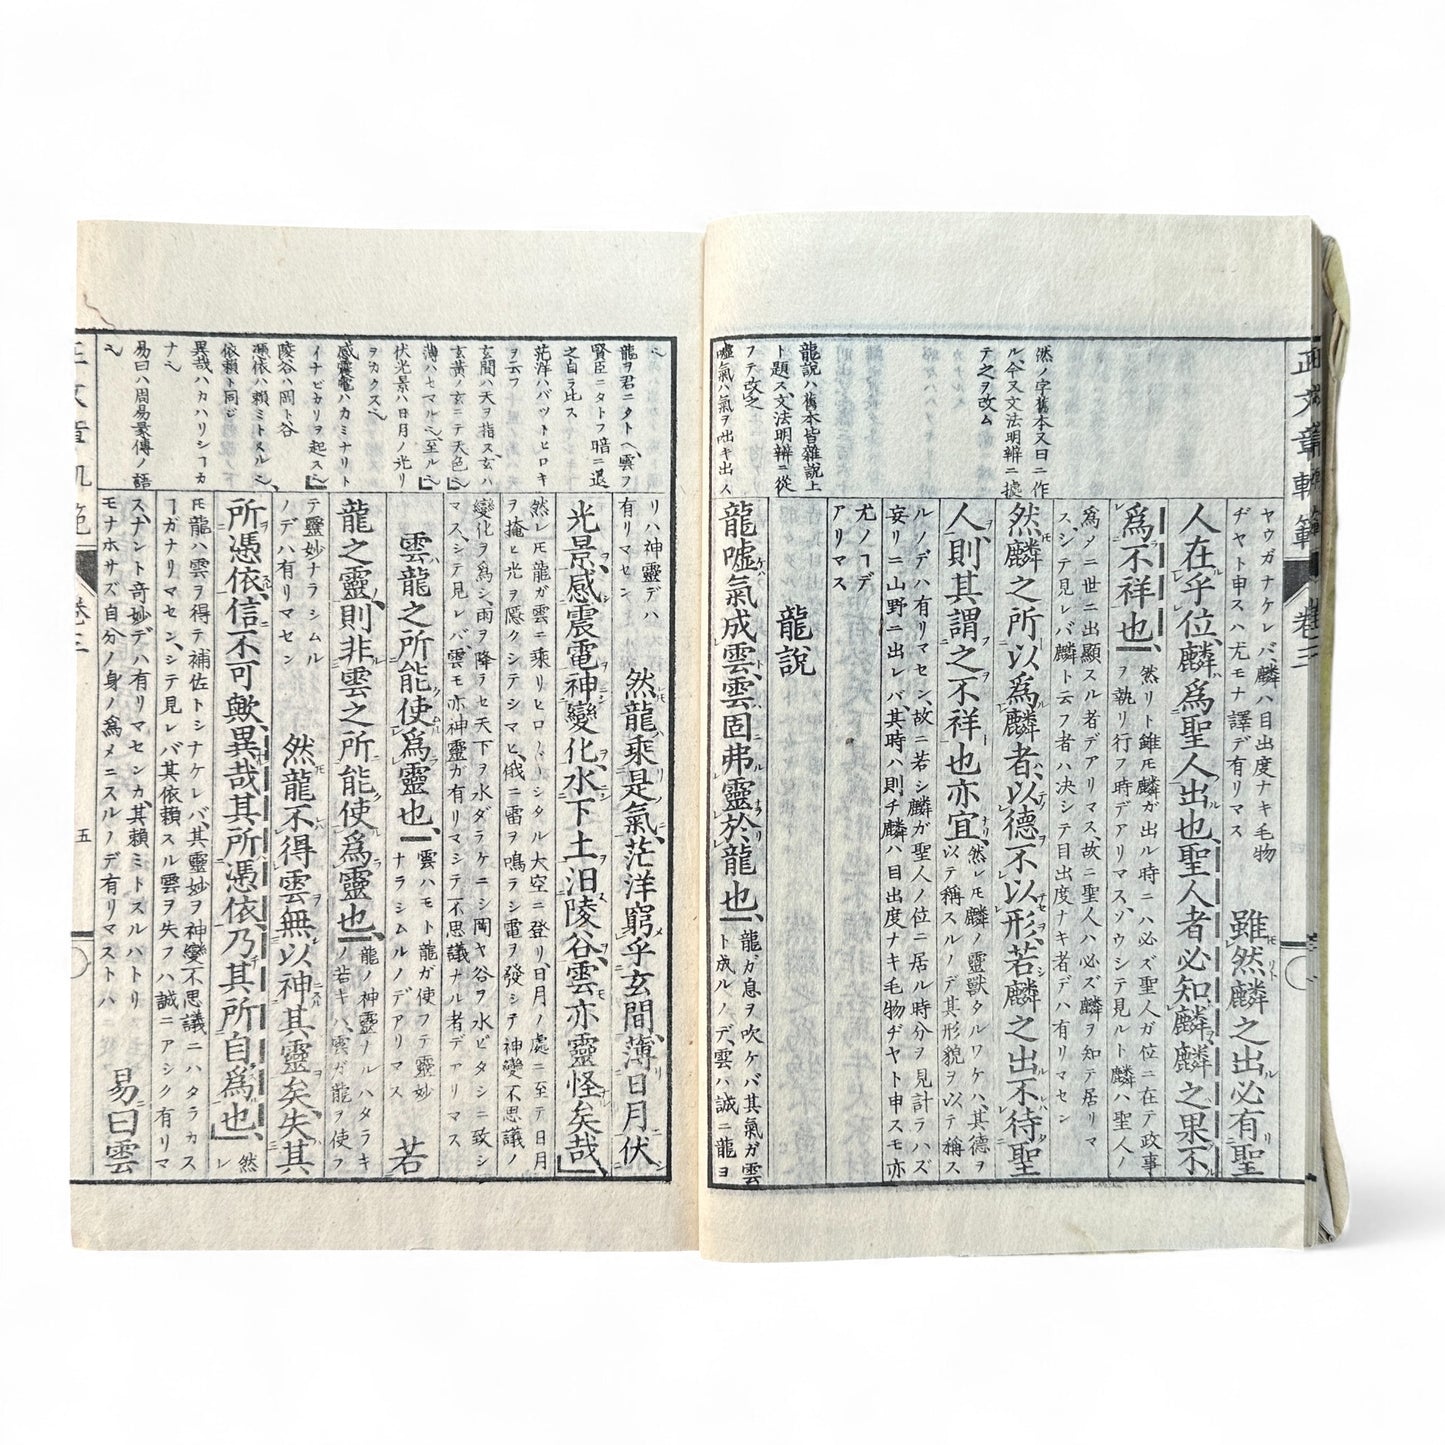 然ノ字舊本又曰ニ作
ル、今又文法明辨ニ據
テ之ヲ改ム
龍說ハ舊本皆雜說上
ト題ス、文法明辨ニ從
フテ改之
噓氣ハ氣ヲ吐キ出人
ヤウガナケレバ麟ハ目出度ナキ毛物
ヂヤト申スハ尤モナ譯デ有リマス
雖然麟之出必有聖
人在乎位、麟爲聖人出也、聖人者必知麟、麟之果不
爲不祥也、
然リト雖モ麟ガ出ル時ニハ必ズ聖人ガ位ニ在テ政事
ヲ執リ行フ時デアリマス、ソウシテ見ルト麟ハ聖人ノ
爲メニ世ニ出顯スル者デアリマス、故ニ聖人ハ必ズ麟ヲ知テ居リマ
ス、シテ見レバ麟ト云フ者ハ決シテ目出度ナキ者デハ有リマセン
然麟之所以爲麟者、以德不以形、若麟之出不待聖
人、則其謂之不祥也亦宜、
然レモ麟ノ靈獸タルワケハ、其德ヲ
以テ稱スルノデ其形貌ヲ以テ稱ス
ルノデハ有リマセン、故ニ若シ麟ガ聖人ノ位ニ居ル時分ヲ見計ラハズ
妄リニ山野ニ出レバ、其時ハ則チ麟ハ目出度ナキ毛物ヂヤト申スモ亦
尤ノヿデ
アリマス
龍說
龍噓氣成雲、雲固弗靈於龍也、
龍ガ息ヲ吹ケバ其氣ガ雲
ト成ルノデ、雲ハ誠ニ龍ヨ
正文章軌範
卷三
龍ヲ君ニタトヘ、雲ヲ
賢臣ニタトフ暗ニ退
之自ラ比ス
茫洋ハバットヒロキ
ヲ云フ
玄間ハ天ヲ指ス、玄ハ
玄黃ノ玄ニテ天色
薄ハセマル、至ル
伏光景ハ日月ノ光リ
ヲカクス
感震電ハカミナリト
イナビカリヲ起ス
陵谷ハ岡ト谷
憑依ハ賴ミトスル、
依賴ト同ジ
異哉ハカハリシヿカ
ナ
易曰ハ周易彖傳ノ語
リハ神靈デハ
有リマセン
然龍乘是氣、茫洋窮乎玄間、薄日月、伏
光景、感震電、神變化、水下土、汨陵谷、雲亦靈怪矣哉
然レモ龍ガ雲ニ乘リヒロ〳〵シタル大空ニ登リ、日月ノ處ニ至テ日月
ヲ掩ヒ光ヲ隱クシテシマヒ、俄ニ雷ヲ鳴ラシ電ヲ發シテ神變不思議ノ
變化ヲ爲シ、雨ヲ降ラセ天下ヲ水ダラケニシ岡ヤ谷ヲ水ビタシニ致シ
マス、シテ見レバ雲モ亦神靈ガ有リマシテ不思議ナル者デアリマス
若
雲龍之所能使爲靈也、
雲ハモト龍ガ使フテ靈妙
ナラシムルノデアリマス
龍之靈、則非雲之所能使爲靈也、
龍ノ神靈ナルハタラキ
ノ若キハ、雲ガ龍ヲ使フ
テ靈妙ナラシムル
ノデハ有リマセン
然龍不得雲、無以神其靈矣、失其
所憑依、信不可歟、異哉其所憑依、乃其所自爲也、
然
レモ龍ハ雲ヲ得テ補佐トシナケレバ、其靈妙ヲ神變不思議ニハタラカス
ヿガナリマセン、シテ見レバ其依賴スル雲ヲ失フハ誠ニアシク有リマ
ス、ナント奇妙デハ有リマセンカ、其賴ミトスルハトリ
モナホサズ自分ノ身ノ爲メニスルノデ有リマストハ
易曰雲
卷三
五